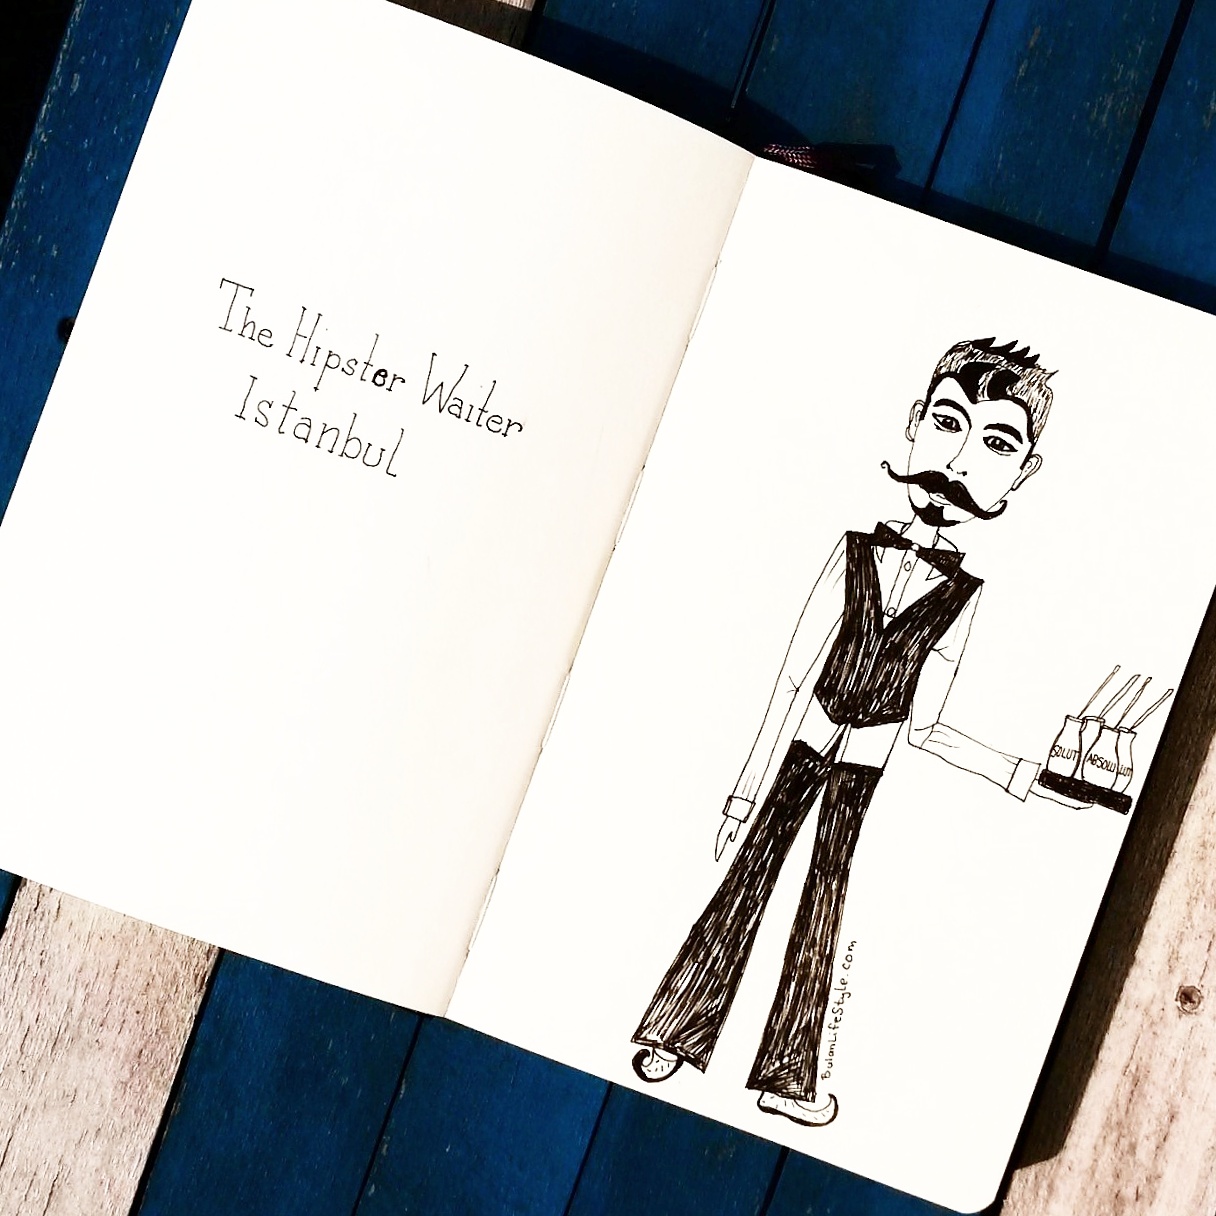 The Hipster Waiter
Istanbul
SOLUT ABSOLU LUT
BulanLifeStyle.com